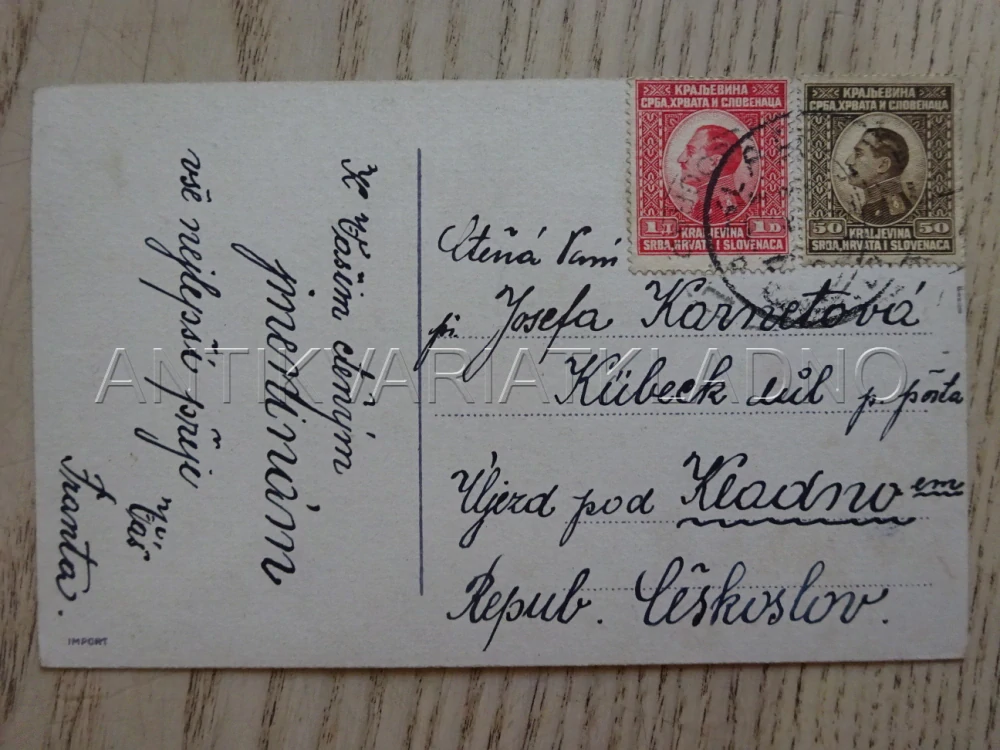 K Vaším cteným
jmeninám
vše nejlepší přeje
Váš
Franta.
IMPORT
КРАЉЕВИНА
СРБА, ХРВАТА И СЛОВЕНАЦА
1Д 1D
KRALJEVINA
SRBA, HRVATA I SLOVENACA
КРАЉЕВИНА
СРБА, ХРВАТА И СЛОВЕНАЦА
50 50
KRALJEVINA
SRBA, HRVATA I SLOVENACA
Ctěná Paní
pí. Josefa Karnetová
Kübeck důl p. pošta
Újezd pod Kladno em
Repub. Čěskoslov.
ANTIKVARIATKLADNO